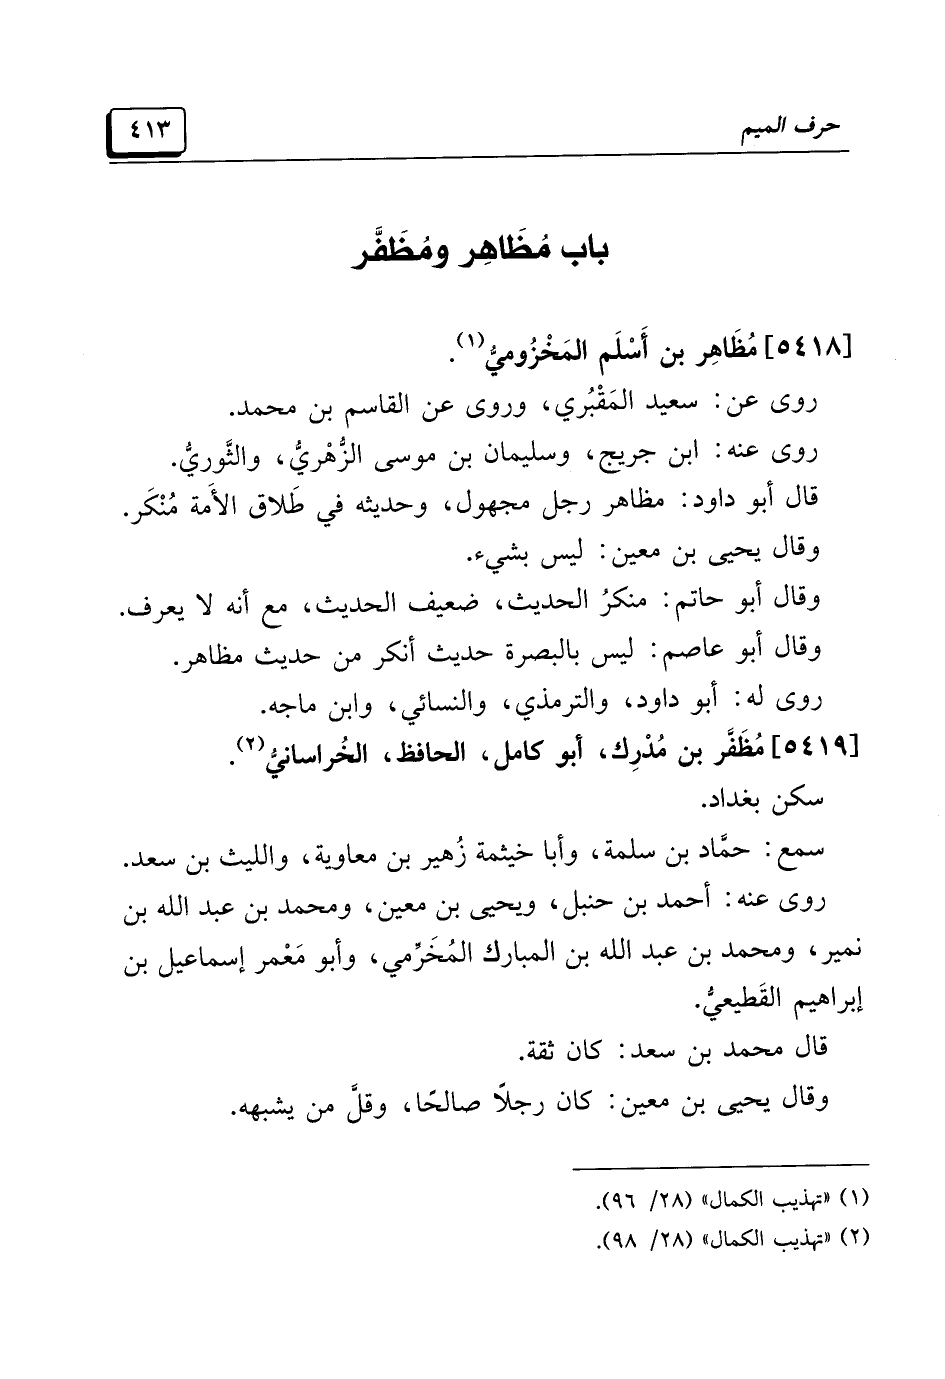 حرف الميم
٤١٣
باب مُظَاهِر ومُظَفَّر
[٥٤١٨] مُظَاهِر بن أَسْلَم المَخْزُوميُّ(١).
روى عن: سعيد المَقْبُري، وروى عن القاسم بن محمد.
روى عنه: ابن جريج، وسليمان بن موسى الزُّهْريُّ، والثَّوريُّ.
قال أبو داود: مظاهر رجل مجهول، وحديثه في طَلاق الأمة مُنْكَر.
وقال يحيى بن معين: ليس بشيء.
وقال أبو حاتم: منكرُ الحديث، ضعيف الحديث، مع أنه لا يعرف.
وقال أبو عاصم: ليس بالبصرة حديث أنكر من حديث مظاهر.
روى له: أبو داود، والترمذي، والنسائي، وابن ماجه.
[٥٤١٩] مُظَفَّر بن مُدْرِك، أبو كامل، الحافظ، الخُراسانيُّ(٢).
سكن بغداد.
سمع: حمَّاد بن سلمة، وأبا خيثمة زُهير بن معاوية، والليث بن سعد.
روى عنه: أحمد بن حنبل، ويحيى بن معين، ومحمد بن عبد الله بن
نمير، ومحمد بن عبد الله بن المبارك المُخَرِّمي، وأبو مَعْمر إسماعيل بن
إبراهيم القَطيعيُّ.
قال محمد بن سعد: كان ثقة.
وقال يحيى بن معين: كان رجلًا صالحًا، وقلَّ من يشبهه.
(١) «تهذيب الكمال» (٢٨/ ٩٦).
(٢) «تهذيب الكمال» (٢٨/ ٩٨).